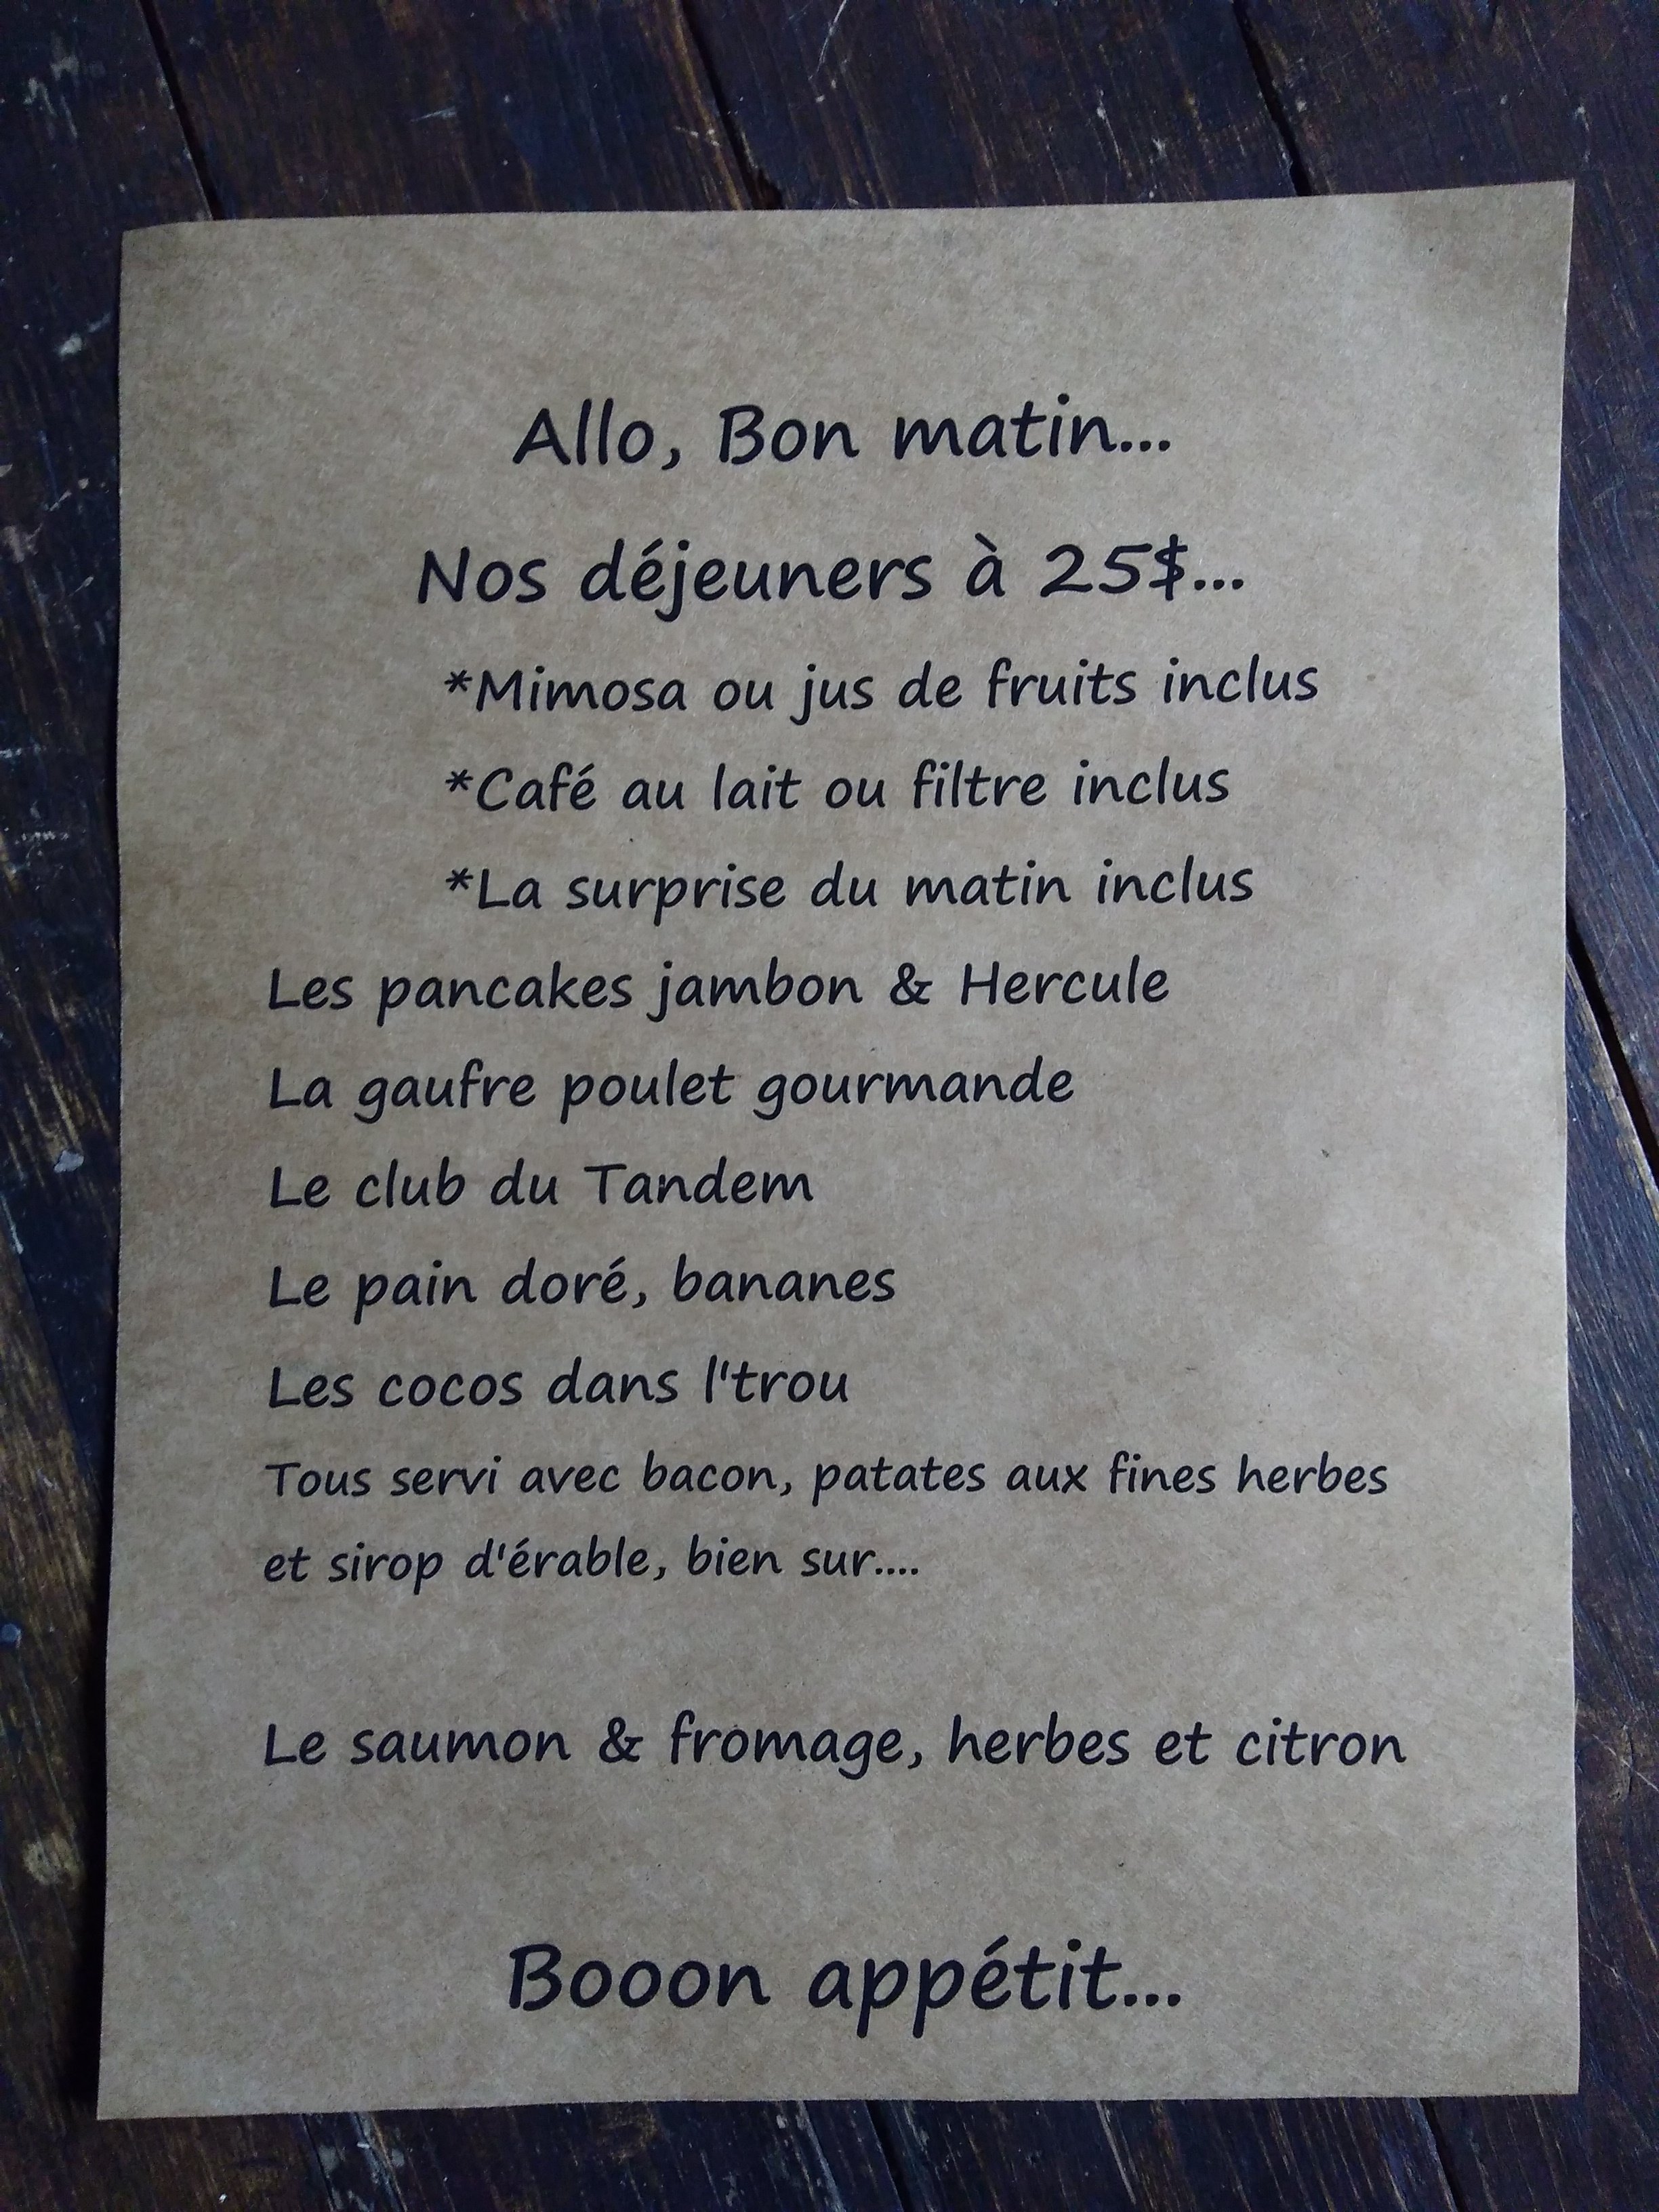 Allo, Bon matin...
Nos déjeuners à 25$...
*Mimosa ou jus de fruits inclus
*Café au lait ou filtre inclus
*La surprise du matin inclus
Les pancakes jambon & Hercule
La gaufre poulet gourmande
Le club du Tandem
Le pain doré, bananes
Les cocos dans l'trou
Tous servi avec bacon, patates aux fines herbes
et sirop d'érable, bien sur....
Le saumon & fromage, herbes et citron
Booon appétit...